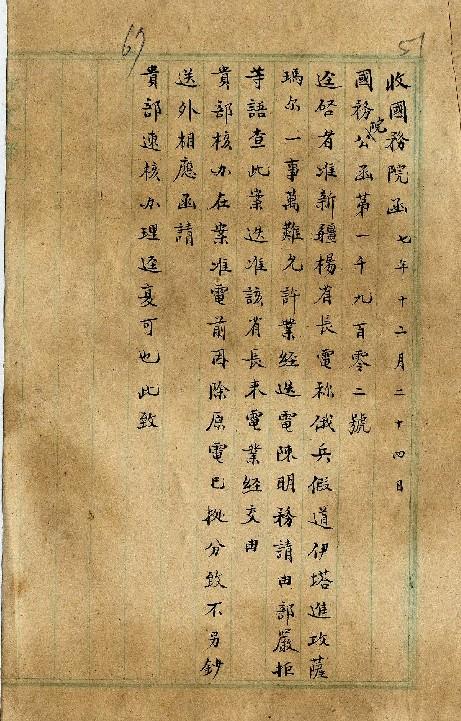 67
51
收國務院函 七年十二月二十四日
國務院公函第一千九百零二號
逕啓者准新疆楊省長電称俄兵假道伊塔進攻薩
瑪尔一事萬難允許業經迭電陳明務請由部嚴拒
等語查此案迭准該省長来電業經交由
貴部核办在案准電前因除原電已挩分致不另鈔
送外相應函請
貴部速核办理逕复可也此致